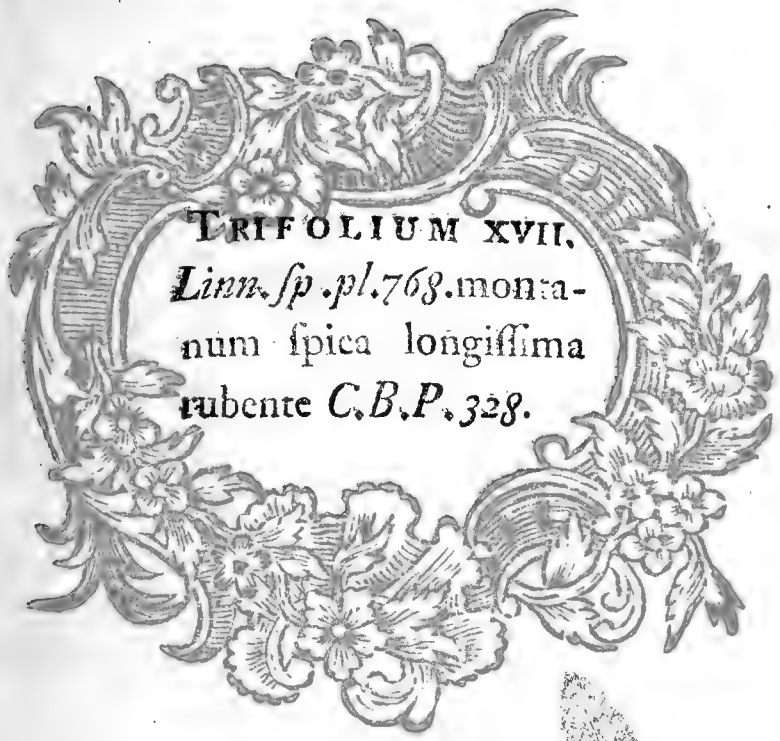 TRIFOLIUM XVII.
Linn. ſp .pl.768.monta-
num ſpica longiſſima
rubente C.B.P.328.